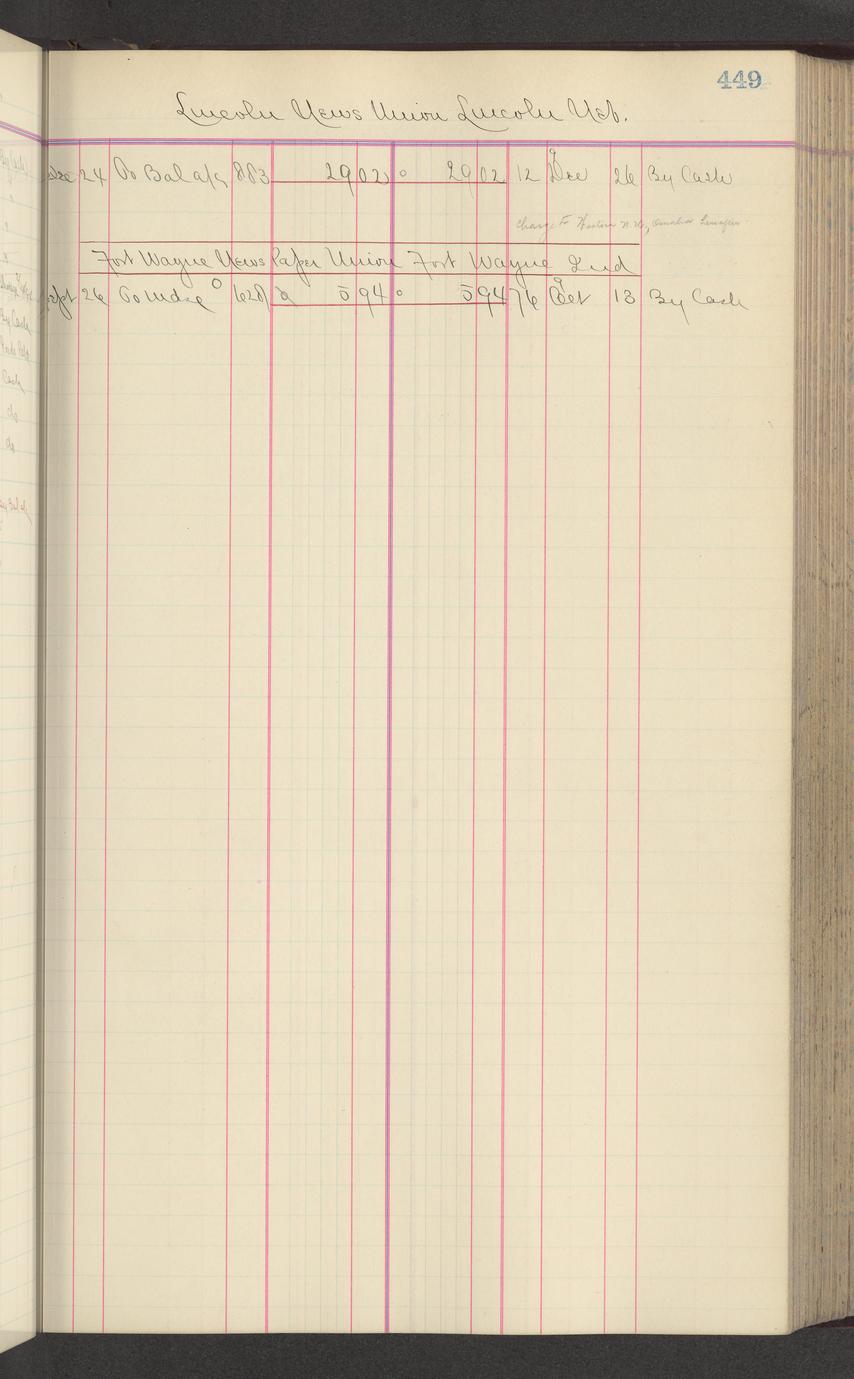 449
Lincoln News Union Lincoln Neb.
Dec 24 To Bal a/c 883 29 02 29 02 12 Dec 26 By Cash
Charge to Western N. U., Omaha
Fort Wayne News Paper Union Fort Wayne Ind
Sept 26 To Mdse 628 5 94 5 94 76 Oct 13 By Cash
By Cash
Cash
do
do
By Bal a/c